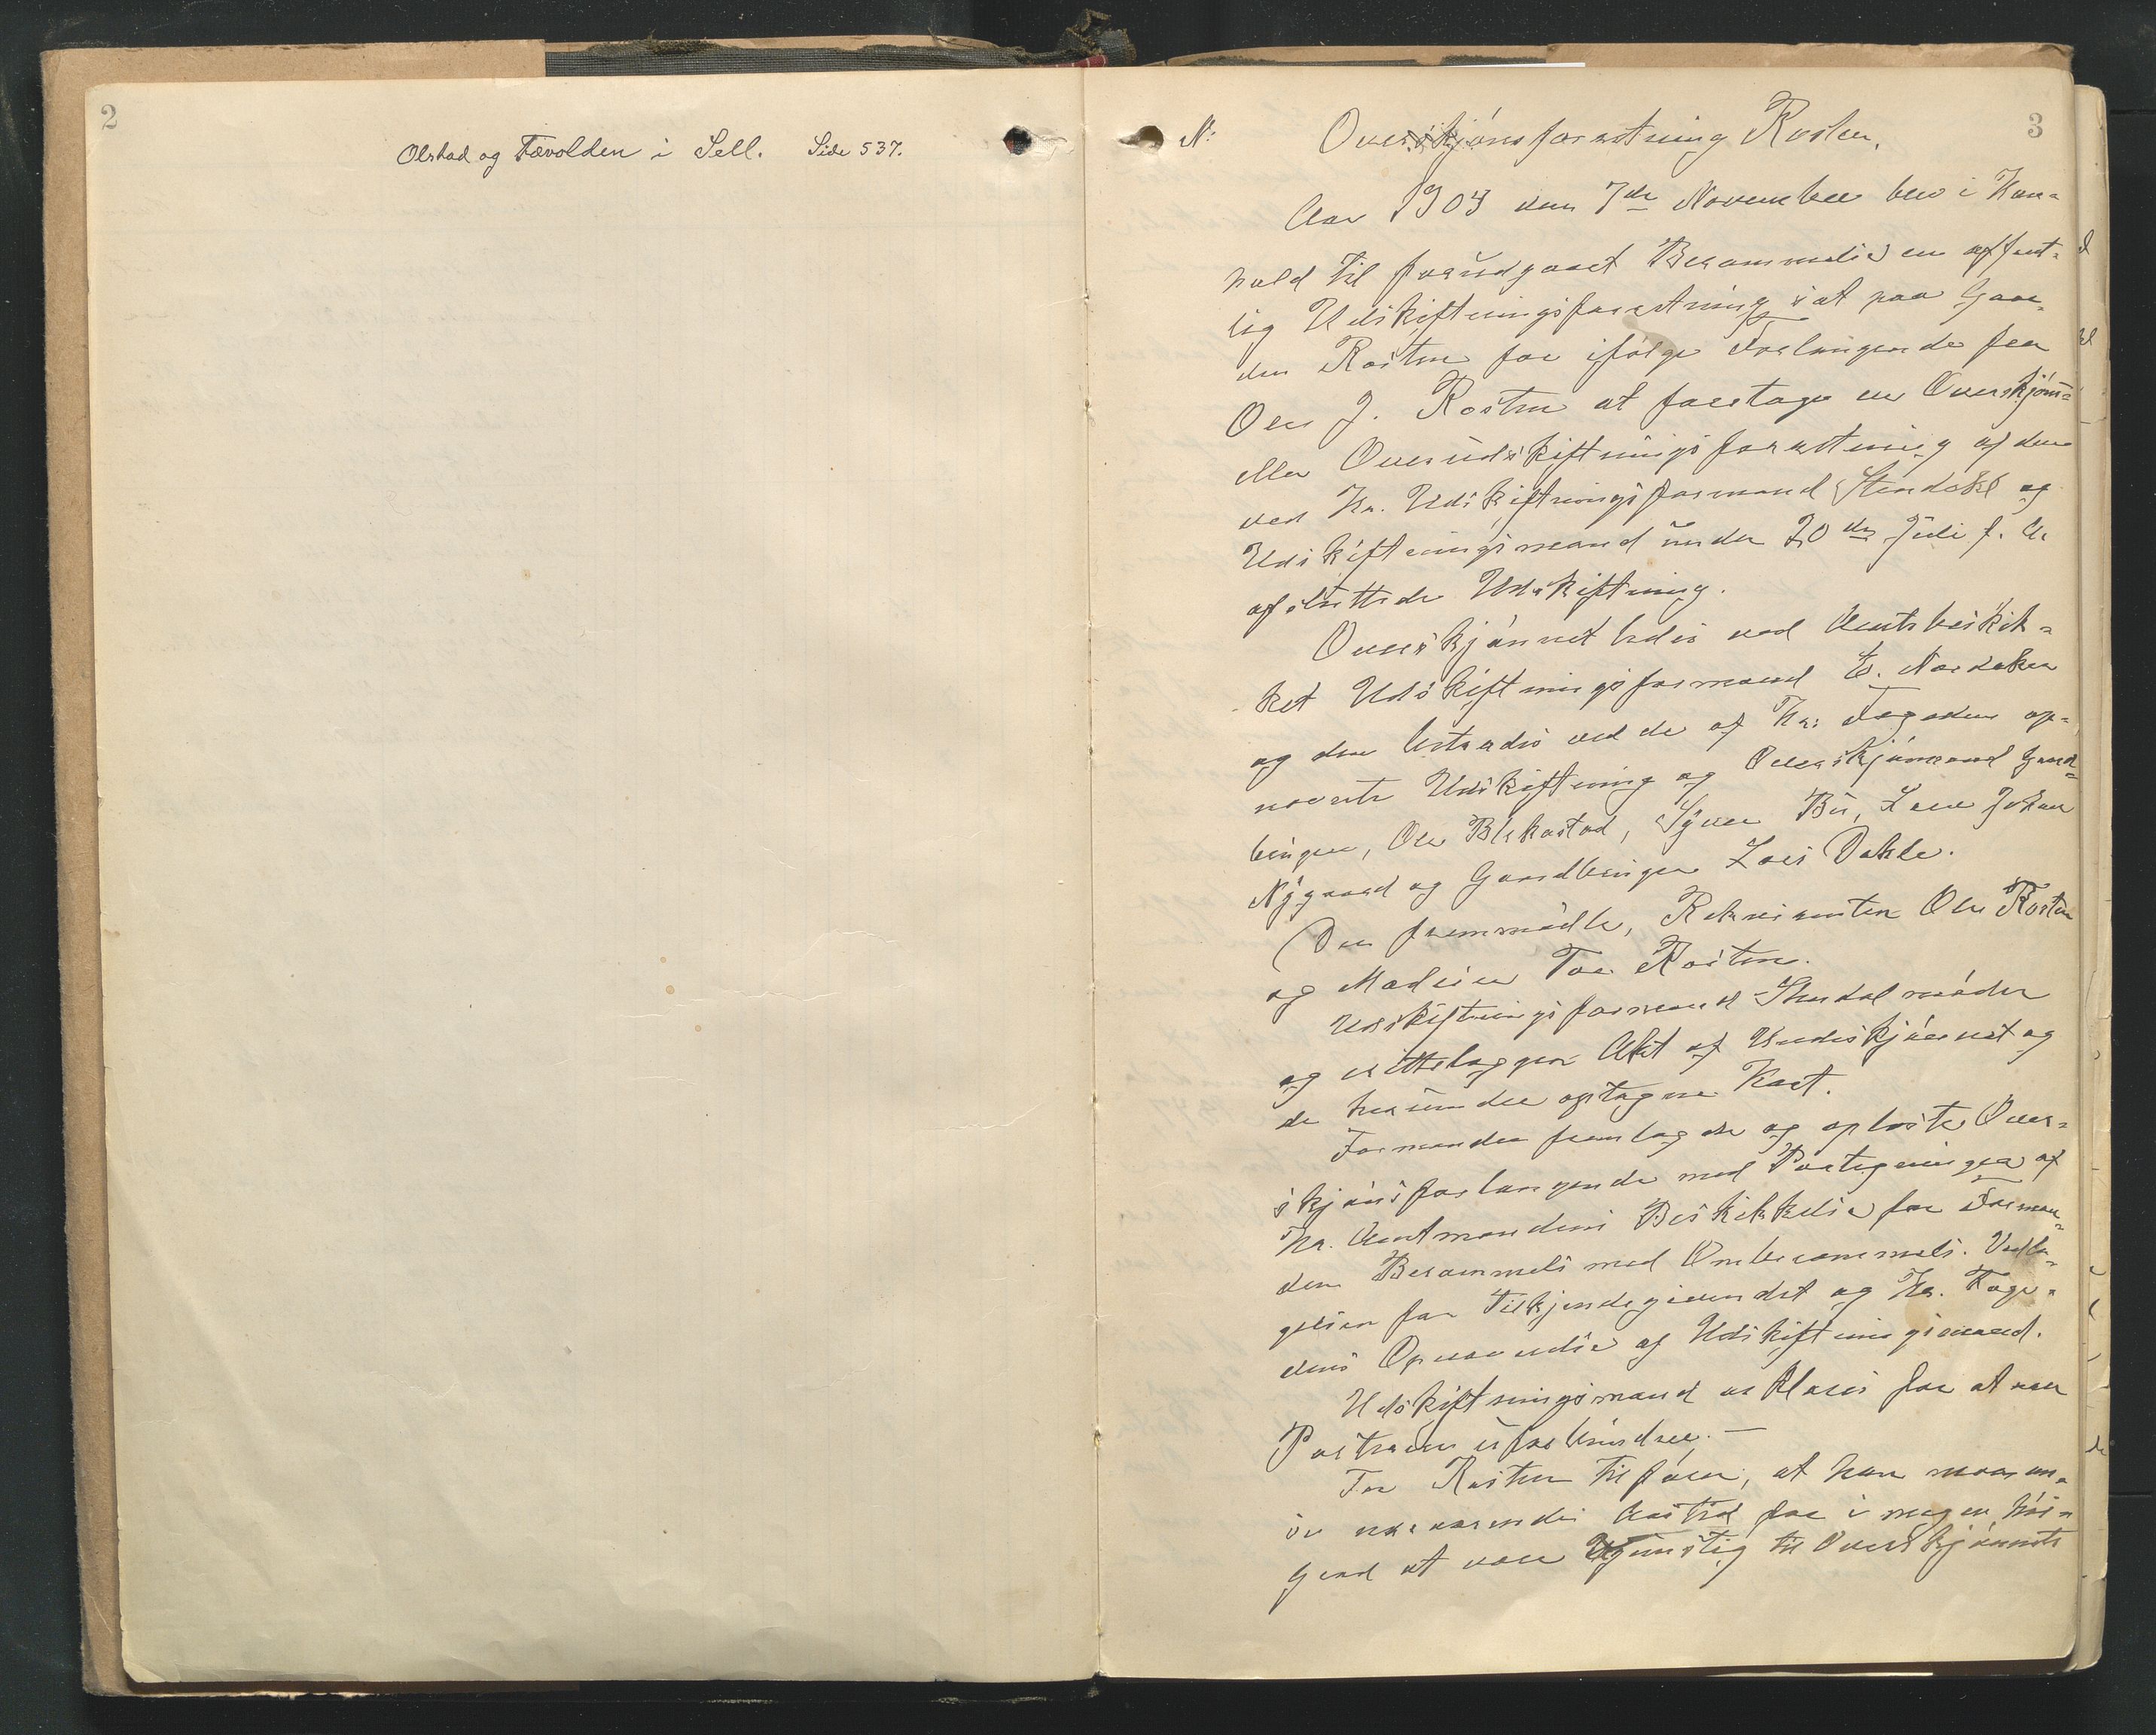 2
Olstad og Tævolden i Sell. Side 537.
3
No: Overskjønsforretning Rosten.
Aar 1903 den 7de November blev i Hen-
hold til forudgaaet Berammelse en offent-
lig Udskiftningsforretning sat paa Gaar-
den Rosten for ifølge Forlangende fra
Ole J. Rosten at foretage en Overskjøns-
eller Overudskiftningsforretning af den
ved Hr. Udskiftningsformand Stendahl og
Udskiftningsmænd under 20de Juli f. A.
afsluttede Udskiftning.
Overskjønnet ledes ved Amtsbeskik-
ket Udskiftningsformand E. Nordaker
og den bistaaes ved de af Hr. Fogden op-
nævnte Udskiftning og Overskjønsmænd Gaard-
brugere, Ole Blekastad, Syver Bu, Johan
Nygaard og Gaardbruger Lars Dahle.
Der fremmødte, Rekvirenten Ole Rosten
og Medeier Tor Rosten.
Udskiftningsformand Stendal møder
og Akt af Underskjønnet og
de herunder optagne Kart.
Formanden fremlagde og oplæste Over-
skjønsforlangende med Paategninger af
Hr. Amtmandens Beskikkelse for Forman-
den Berammelse med Omberammels. Vedla-
gelsen for Tilkjendegivendet og Hr. Foge-
dens Opnævnelse af Udskiftningsmænd.
Udskiftningsmænd erklæres for at være
Parterne uforbundne. —
Tor Rosten tilfører, at han maa an-
se nærværende Aarstid for i megen høi
Grad at være Ugunstig til Overskjønnets